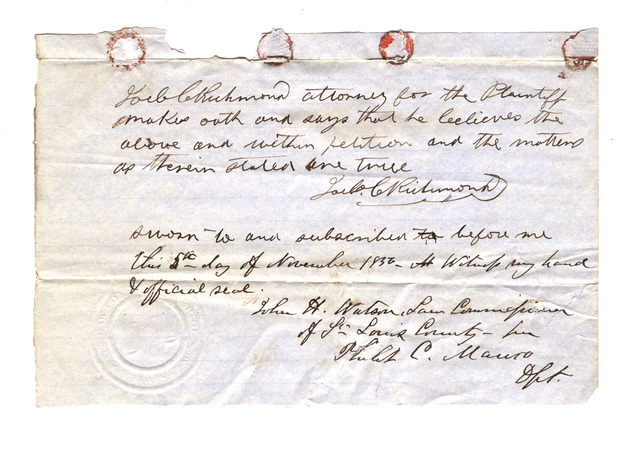 C Richmond attorney for the Plaintiff
makes oath and says that he believes the
above and within petition and the matters
as therein stated are true
C Richmond
sworn to and subscribed before me
this 5th day of November 1850 - At Witness my hand
& official seal.
John H. Watson, Law Commissioner
of St Louis County -
Philip C. Mauro
Dpt.